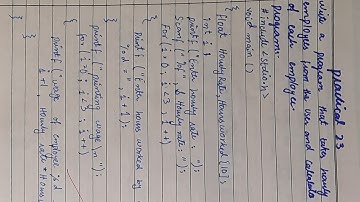 practical 23
write a program that takes hourly
employees from the user and calculate
of each employee.
Program:-
#include <stdio.h>
void main ()
{
float Hourly Rate, Hours worked [10];
int i;
printf ("Enter hourly rate: ");
Scanf ("%f", & Hourly rate);
for (i=0; i<3; i++)
{
printf ("Enter hours worked by
%d = ", i+1);
}
printf ("printing wage \n");
for (i=0; i<3; i++)
{
printf ("wage of employee %d
i+1, Hourly rate * Hours
}
}